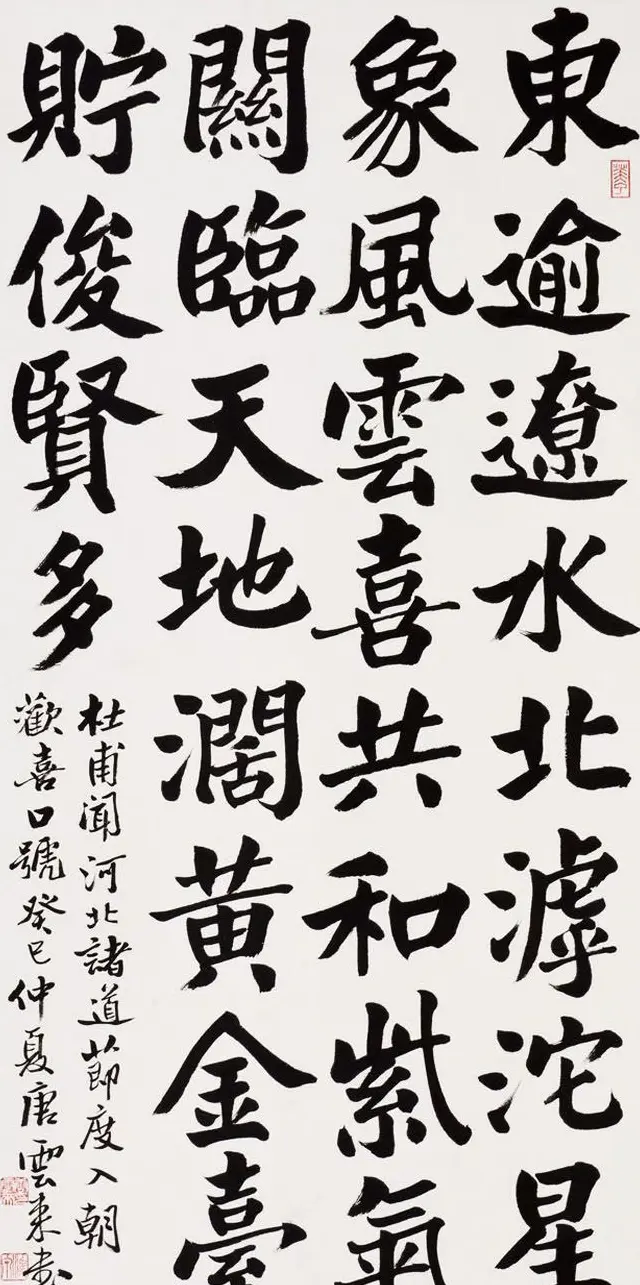 東逾遼水北滹沱星
象風雲喜共和紫氣
關臨天地濶黄金臺
貯俊賢多
杜甫聞河北諸道節度入朝
歡喜口號癸巳仲夏唐雲来书